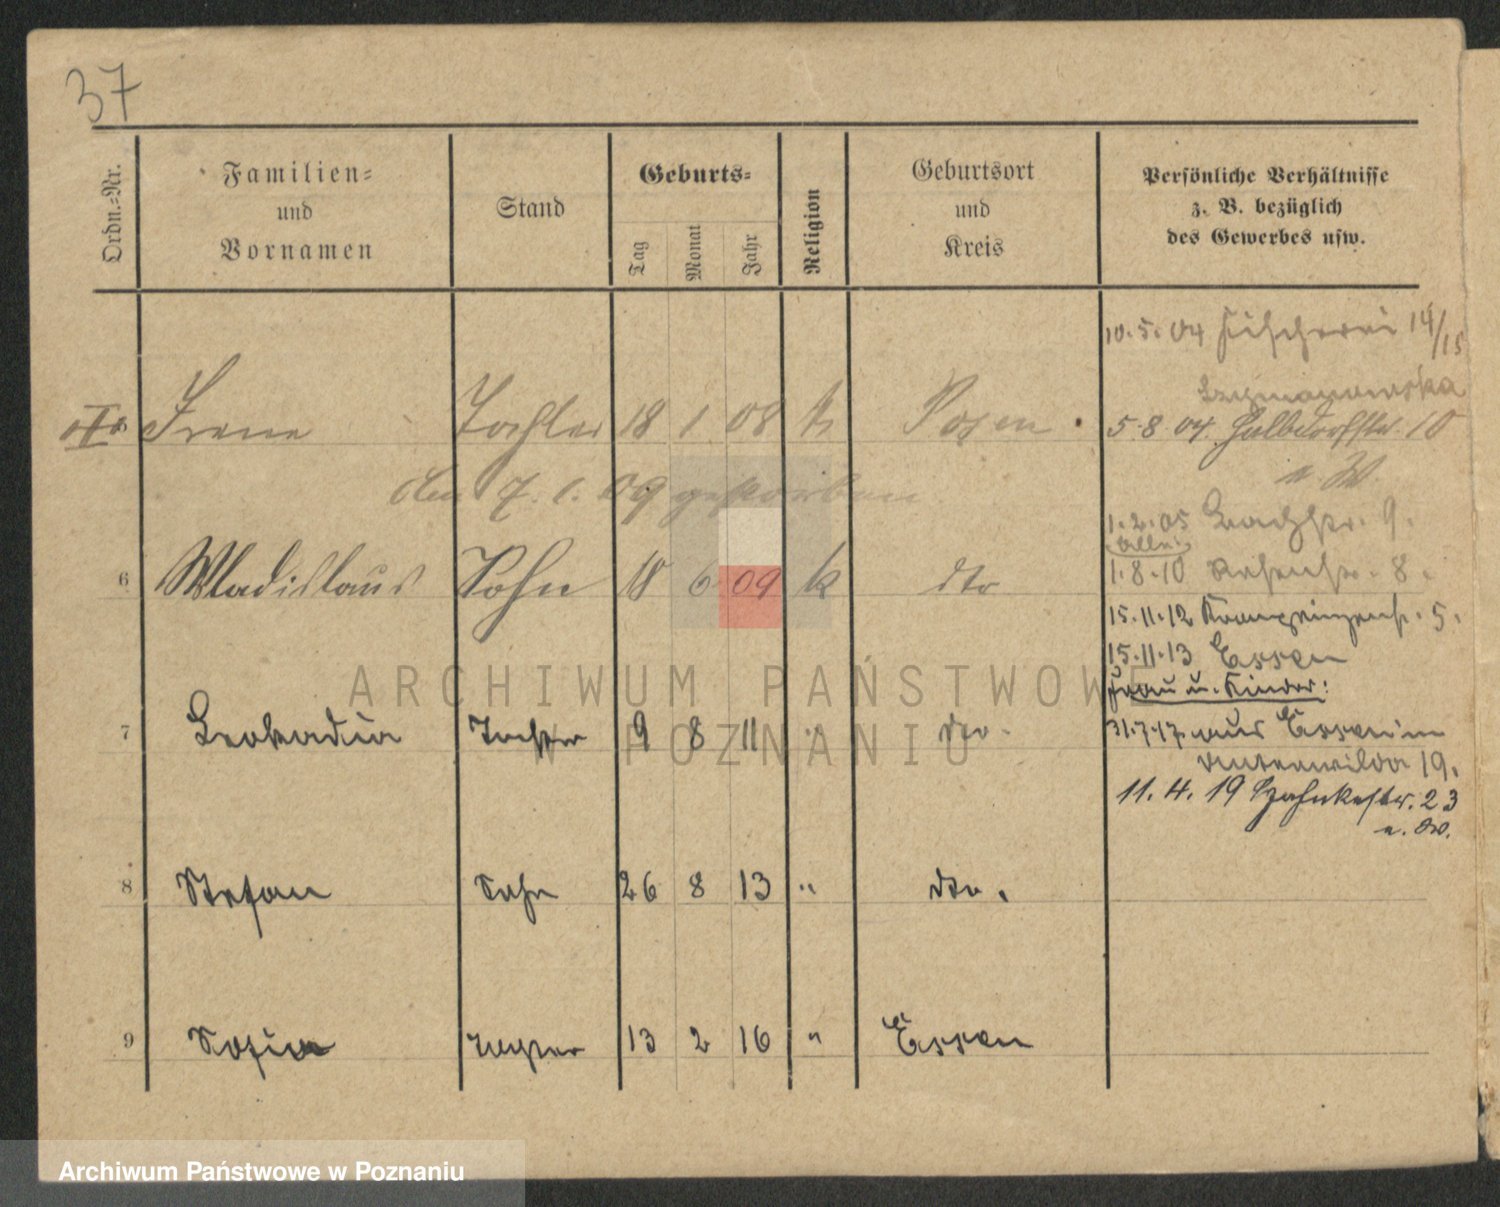 37
Ordn.-Nr.
Familien-
und
Vornamen
Stand
Geburts-
Tag
Monat
Jahr
Religion
Geburtsort
und
Kreis
Persönliche Verhältnisse
z. B. bezüglich
des Gewerbes usw.
10.5.04 Fischerei 14/15
Szymanowska
Irene Tochter 18 1 08 k Posen
5.8.04. Halbdorfstr. 10
b. W.
den 7.1.09 gestorben
1.2.05 Bachstr. 9.
6 Wladislaus Sohn 18 6 09 k dto
1.8.10 8.
15.11.12 Kronprinzenstr. 5.
15.11.13 Essen
Frau u. Kinder:
7 Leokadia Tochter 9 8 11 " dto.
31.7.17. aus Essen in
Unterwilda 19.
11.4.19 23
b. W.
8 Stefan Sohn 26 8 13 " dto.
9 Sofia Tochter 13 2 16 " Essen
ARCHIWUM PAŃSTWOWE
W POZNANIU
Archiwum Państwowe w Poznaniu